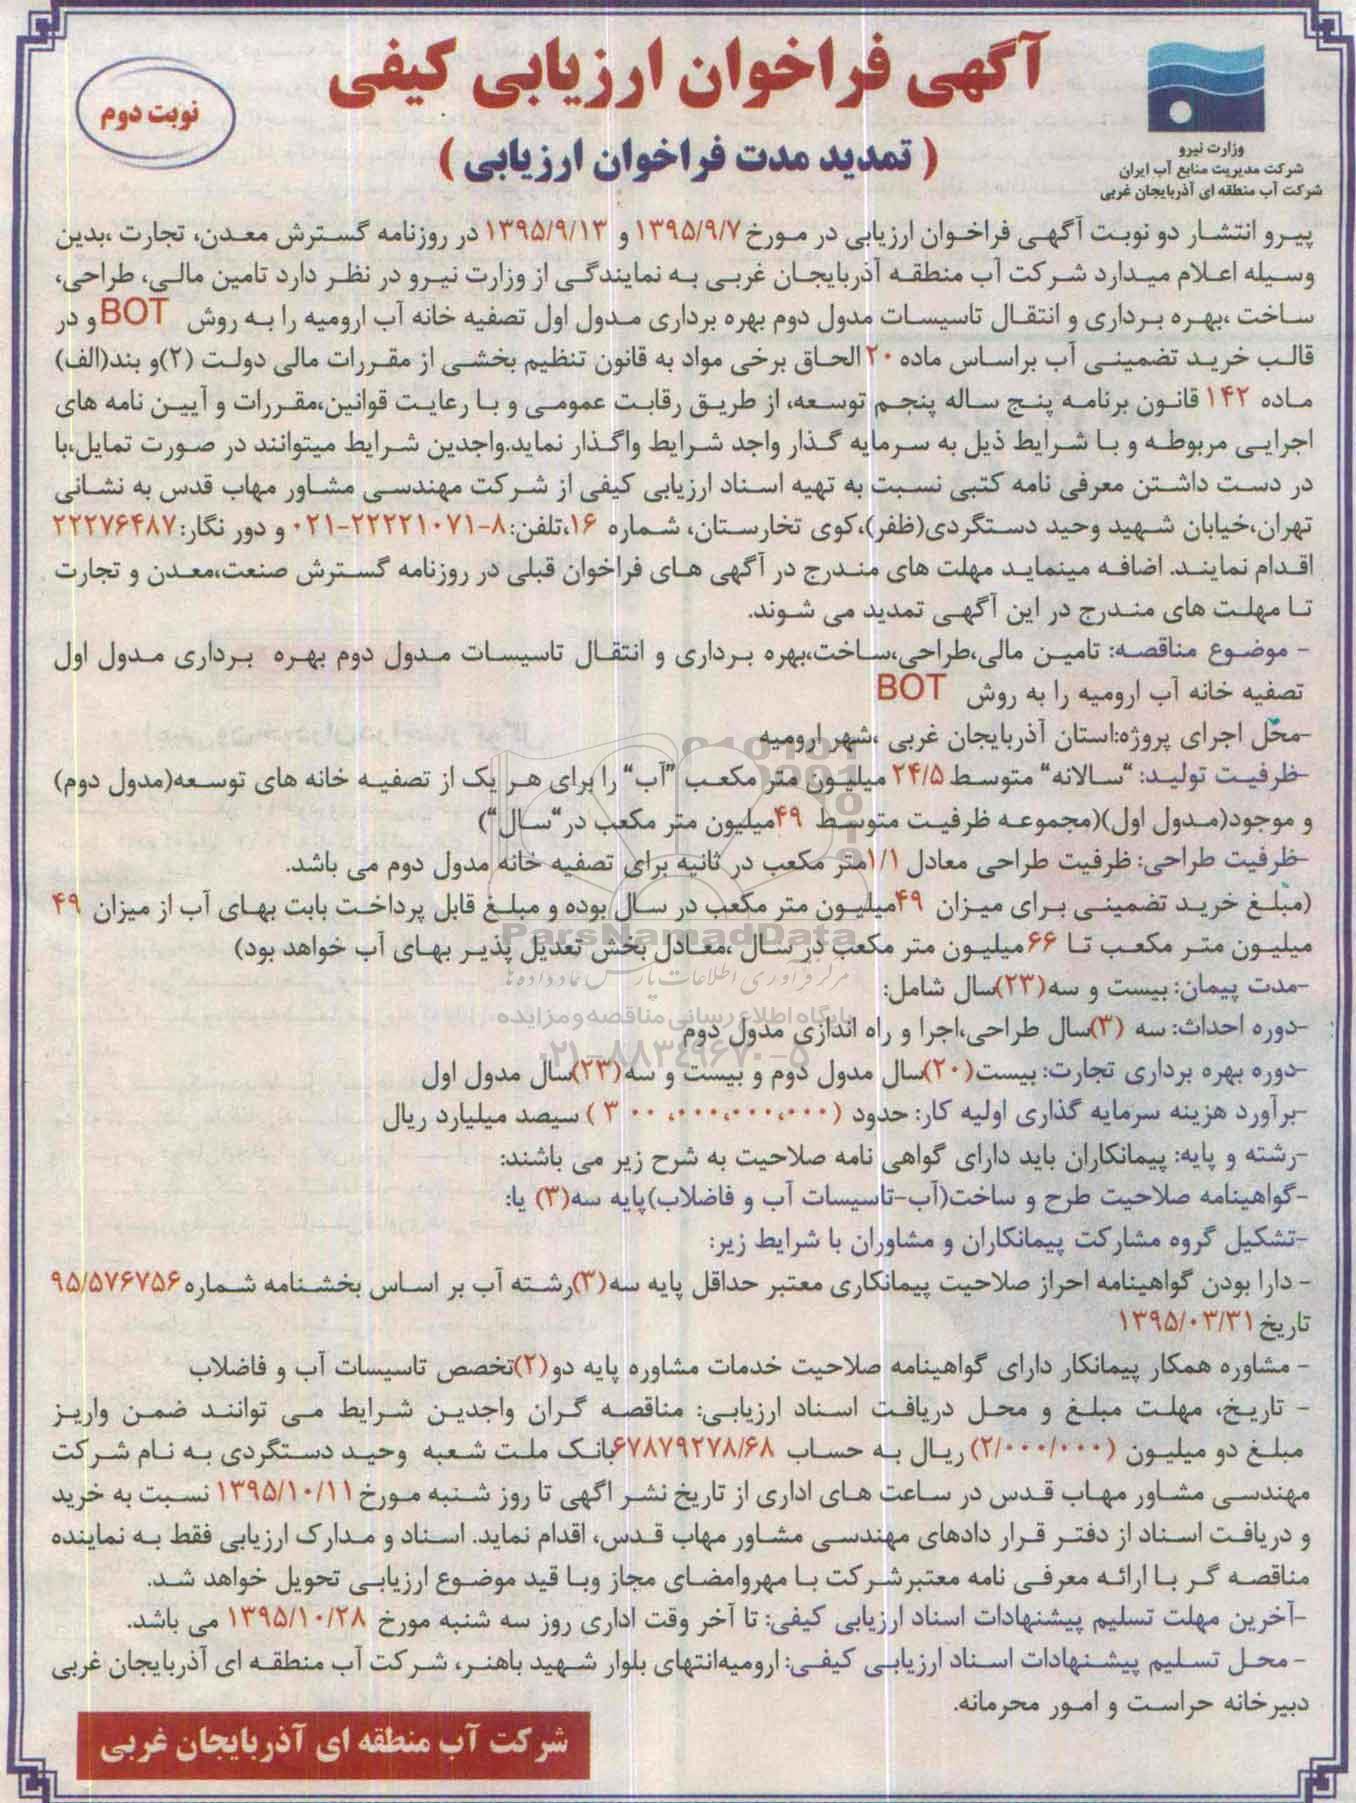 آگهی فراخوان ارزیابی کیفی
( تمدید مدت فراخوان ارزیابی )
نوبت دوم
وزارت نیرو
شرکت مدیریت منابع آب ایران
شرکت آب منطقه ای آذربایجان غربی
پیرو انتشار دو نوبت آگهی فراخوان ارزیابی در مورخ ۱۳۹۵/۹/۷ و ۱۳۹۵/۹/۱۳ در روزنامه گسترش معدن، تجارت ،بدین
وسیله اعلام میدارد شرکت آب منطقه آذربایجان غربی به نمایندگی از وزارت نیرو در نظر دارد تامین مالی، طراحی،
ساخت ،بهره برداری و انتقال تاسیسات مدول دوم بهره برداری مدول اول تصفیه خانه آب ارومیه را به روش BOT و در
قالب خرید تضمینی آب براساس ماده ۲۰ الحاق برخی مواد به قانون تنظیم بخشی از مقررات مالی دولت (۲)و بند(الف)
ماده ۱۴۲ قانون برنامه پنج ساله پنجم توسعه، از طریق رقابت عمومی و با رعایت قوانین،مقررات و آیین نامه های
اجرایی مربوطه و با شرایط ذیل به سرمایه گذار واجد شرایط واگذار نماید.واجدین شرایط میتوانند در صورت تمایل،با
در دست داشتن معرفی نامه کتبی نسبت به تهیه اسناد ارزیابی کیفی از شرکت مهندسی مشاور مهاب قدس به نشانی
تهران،خیابان شهید وحید دستگردی(ظفر)،کوی تخارستان، شماره ۱۶،تلفن:۸-۲۲۲۲۱۰۷۱-۰۲۱ و دور نگار:۲۲۲۷۶۴۸۷
اقدام نمایند. اضافه مینماید مهلت های مندرج در آگهی های فراخوان قبلی در روزنامه گسترش صنعت،معدن و تجارت
تا مهلت های مندرج در این آگهی تمدید می شوند.
- موضوع مناقصه: تامین مالی،طراحی،ساخت،بهره برداری و انتقال تاسیسات مدول دوم بهره برداری مدول اول
تصفیه خانه آب ارومیه را به روش BOT
-محل اجرای پروژه:استان آذربایجان غربی ،شهر ارومیه
-ظرفیت تولید: “سالانه“ متوسط ۲۴/۵ میلیون متر مکعب “آب“ را برای هر یک از تصفیه خانه های توسعه(مدول دوم)
و موجود(مدول اول)(مجموعه ظرفیت متوسط ۴۹میلیون متر مکعب در“سال“)
-ظرفیت طراحی: ظرفیت طراحی معادل ۱/۱متر مکعب در ثانیه برای تصفیه خانه مدول دوم می باشد.
(مبلغ خرید تضمینی برای میزان ۴۹میلیون متر مکعب در سال بوده و مبلغ قابل پرداخت بابت بهای آب از میزان ۴۹
میلیون متر مکعب تا ۶۶ میلیون متر مکعب در سال ،معادل بخش تعدیل پذیر بهای آب خواهد بود)
-مدت پیمان: بیست و سه(۲۳)سال شامل:
-دوره احداث: سه (۳)سال طراحی،اجرا و راه اندازی مدول دوم
-دوره بهره برداری تجارت: بیست(۲۰)سال مدول دوم و بیست و سه(۲۳)سال مدول اول
-برآورد هزینه سرمایه گذاری اولیه کار: حدود (۳۰۰،۰۰۰،۰۰۰،۰۰۰) سیصد میلیارد ریال
-رشته و پایه: پیمانکاران باید دارای گواهی نامه صلاحیت به شرح زیر می باشند:
-گواهینامه صلاحیت طرح و ساخت(آب-تاسیسات آب و فاضلاب)پایه سه(۳) یا:
-تشکیل گروه مشارکت پیمانکاران و مشاوران با شرایط زیر:
- دارا بودن گواهینامه احراز صلاحیت پیمانکاری معتبر حداقل پایه سه(۳)رشته آب بر اساس بخشنامه شماره ۹۵/۵۷۶۷۵۶
تاریخ ۱۳۹۵/۰۳/۳۱
- مشاوره همکار پیمانکار دارای گواهینامه صلاحیت خدمات مشاوره پایه دو(۲)تخصص تاسیسات آب و فاضلاب
- تاریخ، مهلت مبلغ و محل دریافت اسناد ارزیابی: مناقصه گران واجدین شرایط می توانند ضمن واریز
مبلغ دو میلیون (۲/۰۰۰/۰۰۰) ریال به حساب ۶۷۸۷۹۲۷۸/۶۸بانک ملت شعبه وحید دستگردی به نام شرکت
مهندسی مشاور مهاب قدس در ساعت های اداری از تاریخ نشر اگهی تا روز شنبه مورخ ۱۳۹۵/۱۰/۱۱ نسبت به خرید
و دریافت اسناد از دفتر قرار دادهای مهندسی مشاور مهاب قدس، اقدام نماید. اسناد و مدارک ارزیابی فقط به نماینده
مناقصه گر با ارائه معرفی نامه معتبرشرکت با مهروامضای مجاز وبا قید موضوع ارزیابی تحویل خواهد شد.
-آخرین مهلت تسلیم پیشنهادات اسناد ارزیابی کیفی: تا آخر وقت اداری روز سه شنبه مورخ ۱۳۹۵/۱۰/۲۸ می باشد.
- محل تسلیم پیشنهادات اسناد ارزیابی کیفی: ارومیه‌انتهای بلوار شهید باهنر، شرکت آب منطقه ای آذربایجان غربی
دبیرخانه حراست و امور محرمانه.
شرکت آب منطقه ای آذربایجان غربی
ParsNamadData
مرکز فرآوری اطلاعات پارس نماد داده ها
پایگاه اطلاع رسانی مناقصه و مزایده
۰۲۱-۸۸۳۴۹۶۷۰-۵